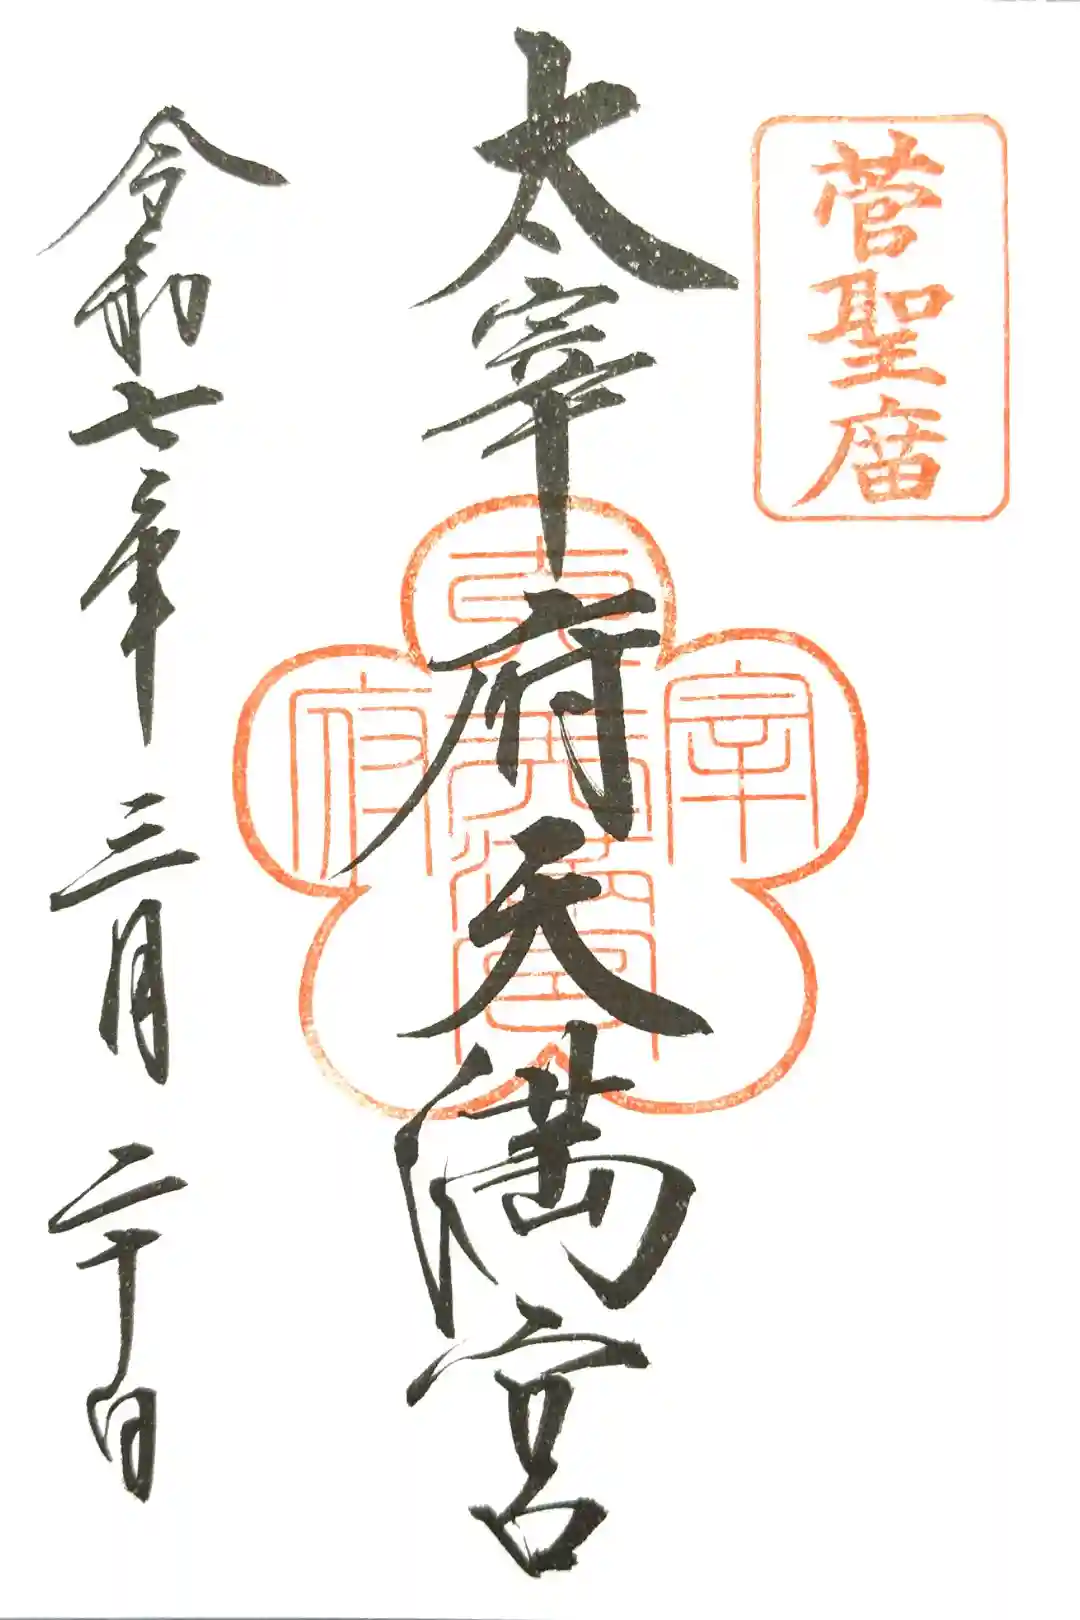 菅聖庿
太宰府天満宮
太宰府
天満宮
令和七年三月二十日